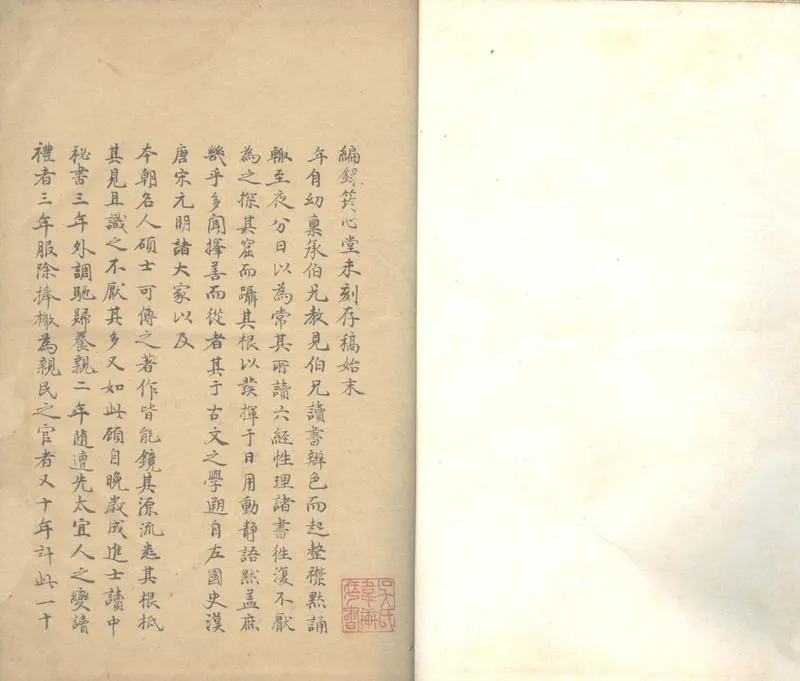 編錄䇹心堂未刻存稿始末
年自幼稟承伯兄教見伯兄讀書辨色而起整襟默誦
輙至夜分日以為常其所讀六經性理諸書徃復不厭
為之探其窟而躡其根以發揮于日用動靜語默盖庶
幾乎多聞擇善而從者其于古文之學遡自左國史漢
唐宋元明諸大家以及
本朝名人碩士可傳之著作皆能鏡其源流悉其根柢
其見且識之不厭其多又如此顧自晚歲成進士讀中
秘書三年外調馳歸養親二年随遭先太宜人之變讀
禮者三年服除捧檄為親民之官者又十年計此一十
吳氏
舊書